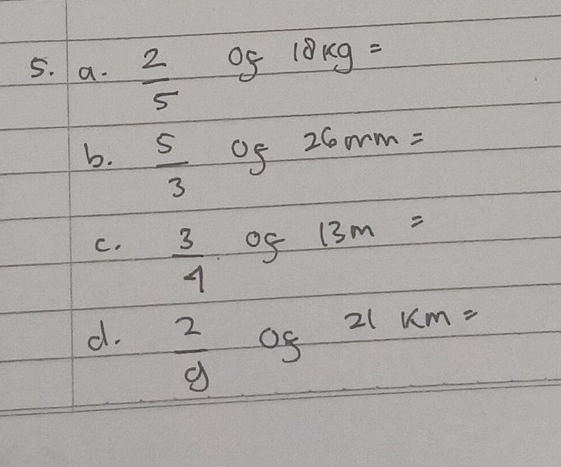 5. a. 2/5 of 18kg =
b. 5/3 of 26mm =
c. 3/4 of 13m =
d. 2/9 of 21 km =